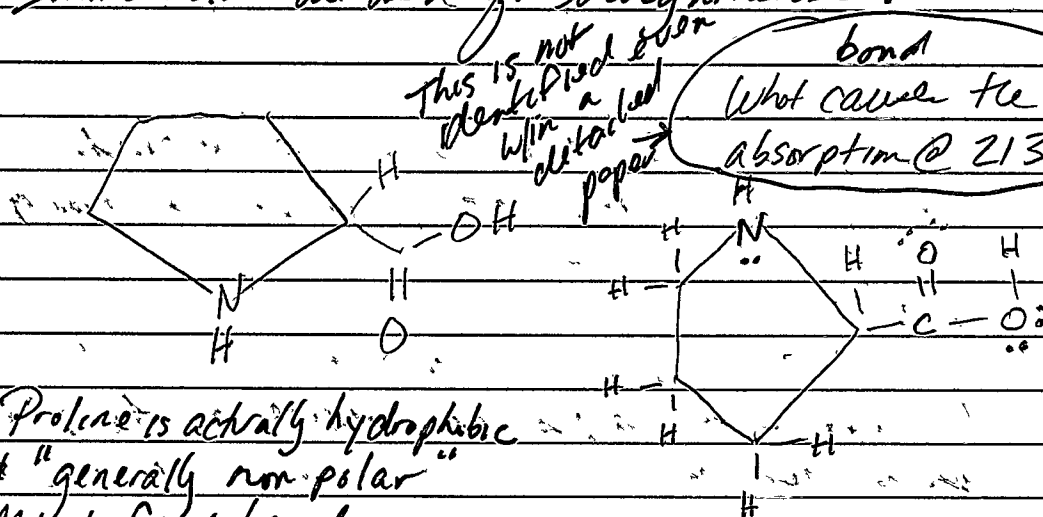 This is not
identified even
w/in a
detailed
paper
bond
What causes the
absorption @ 213
H
OH
N
H
O
H
N
H
H
H
H
O
H
C
O
H
H
H
H
Proline is actually hydrophobic
"generally non polar"